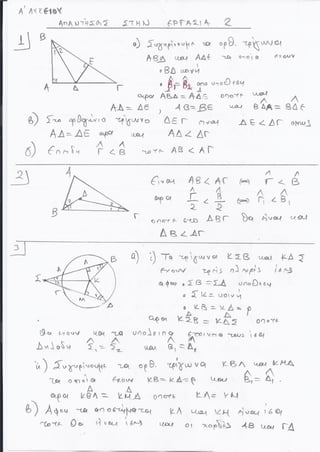 Α΄ ΛΥΚΕΙΟΥ
ΑΠΑΝΤΗΣΕΙΣ ΣΤΗΝ ΕΡΓΑΣΙΑ 2
1
α) Συγκρίνουμε τα ορθ. τρίγωνα
ΑΒΔ και ΑΔΕ τα οποία έχουν
• ΒΔ κοινή
• Β₁ = Β₂ από υπόθεση
άρα ΑΒΔ = ΔΔΕ οπότε και
ΑΔ = ΔΕ , ΑΒ = ΒΕ και
β) Στο ορθογώνιο τρίγωνο ΔΕΓ είναι ΔΕ < ΔΓ όμως
ΑΔ = ΔΕ άρα και ΑΔ < ΔΓ
Γ < Β τότε ΑΒ < ΑΓ
2
Είναι ΑΒ < ΑΓ ⇔ Γ < Β
άρα Γ/2 < Β/2 ⇔ Γ₁ < Β₁
οπότε στο ΔΒΓ θα είναι και
ΔΒ < ΔΓ
3
α) i) Τα τρίγωνα ΚΣΒ και ΚΔΣ
έχουν τρεις πλευρές ίσες
• ΣΒ = ΣΔ υπόθεση
• ΣΚ = κοινή
• ΚΒ = ΚΔ = ρ
άρα ΚΣΒ = ΚΔΣ οπότε
θα έχουν και τα υπόλοιπα στοιχεία τους ίσα
Δηλαδή Σ₁ = Σ₂ και Β₁ = Δ₁
ii) Συγκρίνουμε τα ορθ. τρίγωνα ΚΒΛ και ΚΜΔ
τα οποία έχουν ΚΒ = ΚΔ = ρ και Β₁ = Δ₁ .
άρα ΚΒΛ = ΚΜΔ οπότε ΚΛ = ΚΜ
β) Αφού τα αποστήματα ΚΛ και ΚΜ είναι ίσα
τότε θα είναι ίσες και οι χορδές ΑΒ και ΓΔ